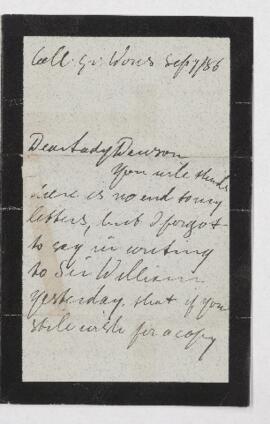 Coll: Gr: Works Sep 7/86
Dear Lady Dawson
You will think
there is no end to my
letters, but I forgot
to say in writing
to Sir William
yesterday that if you
still wish for a copy